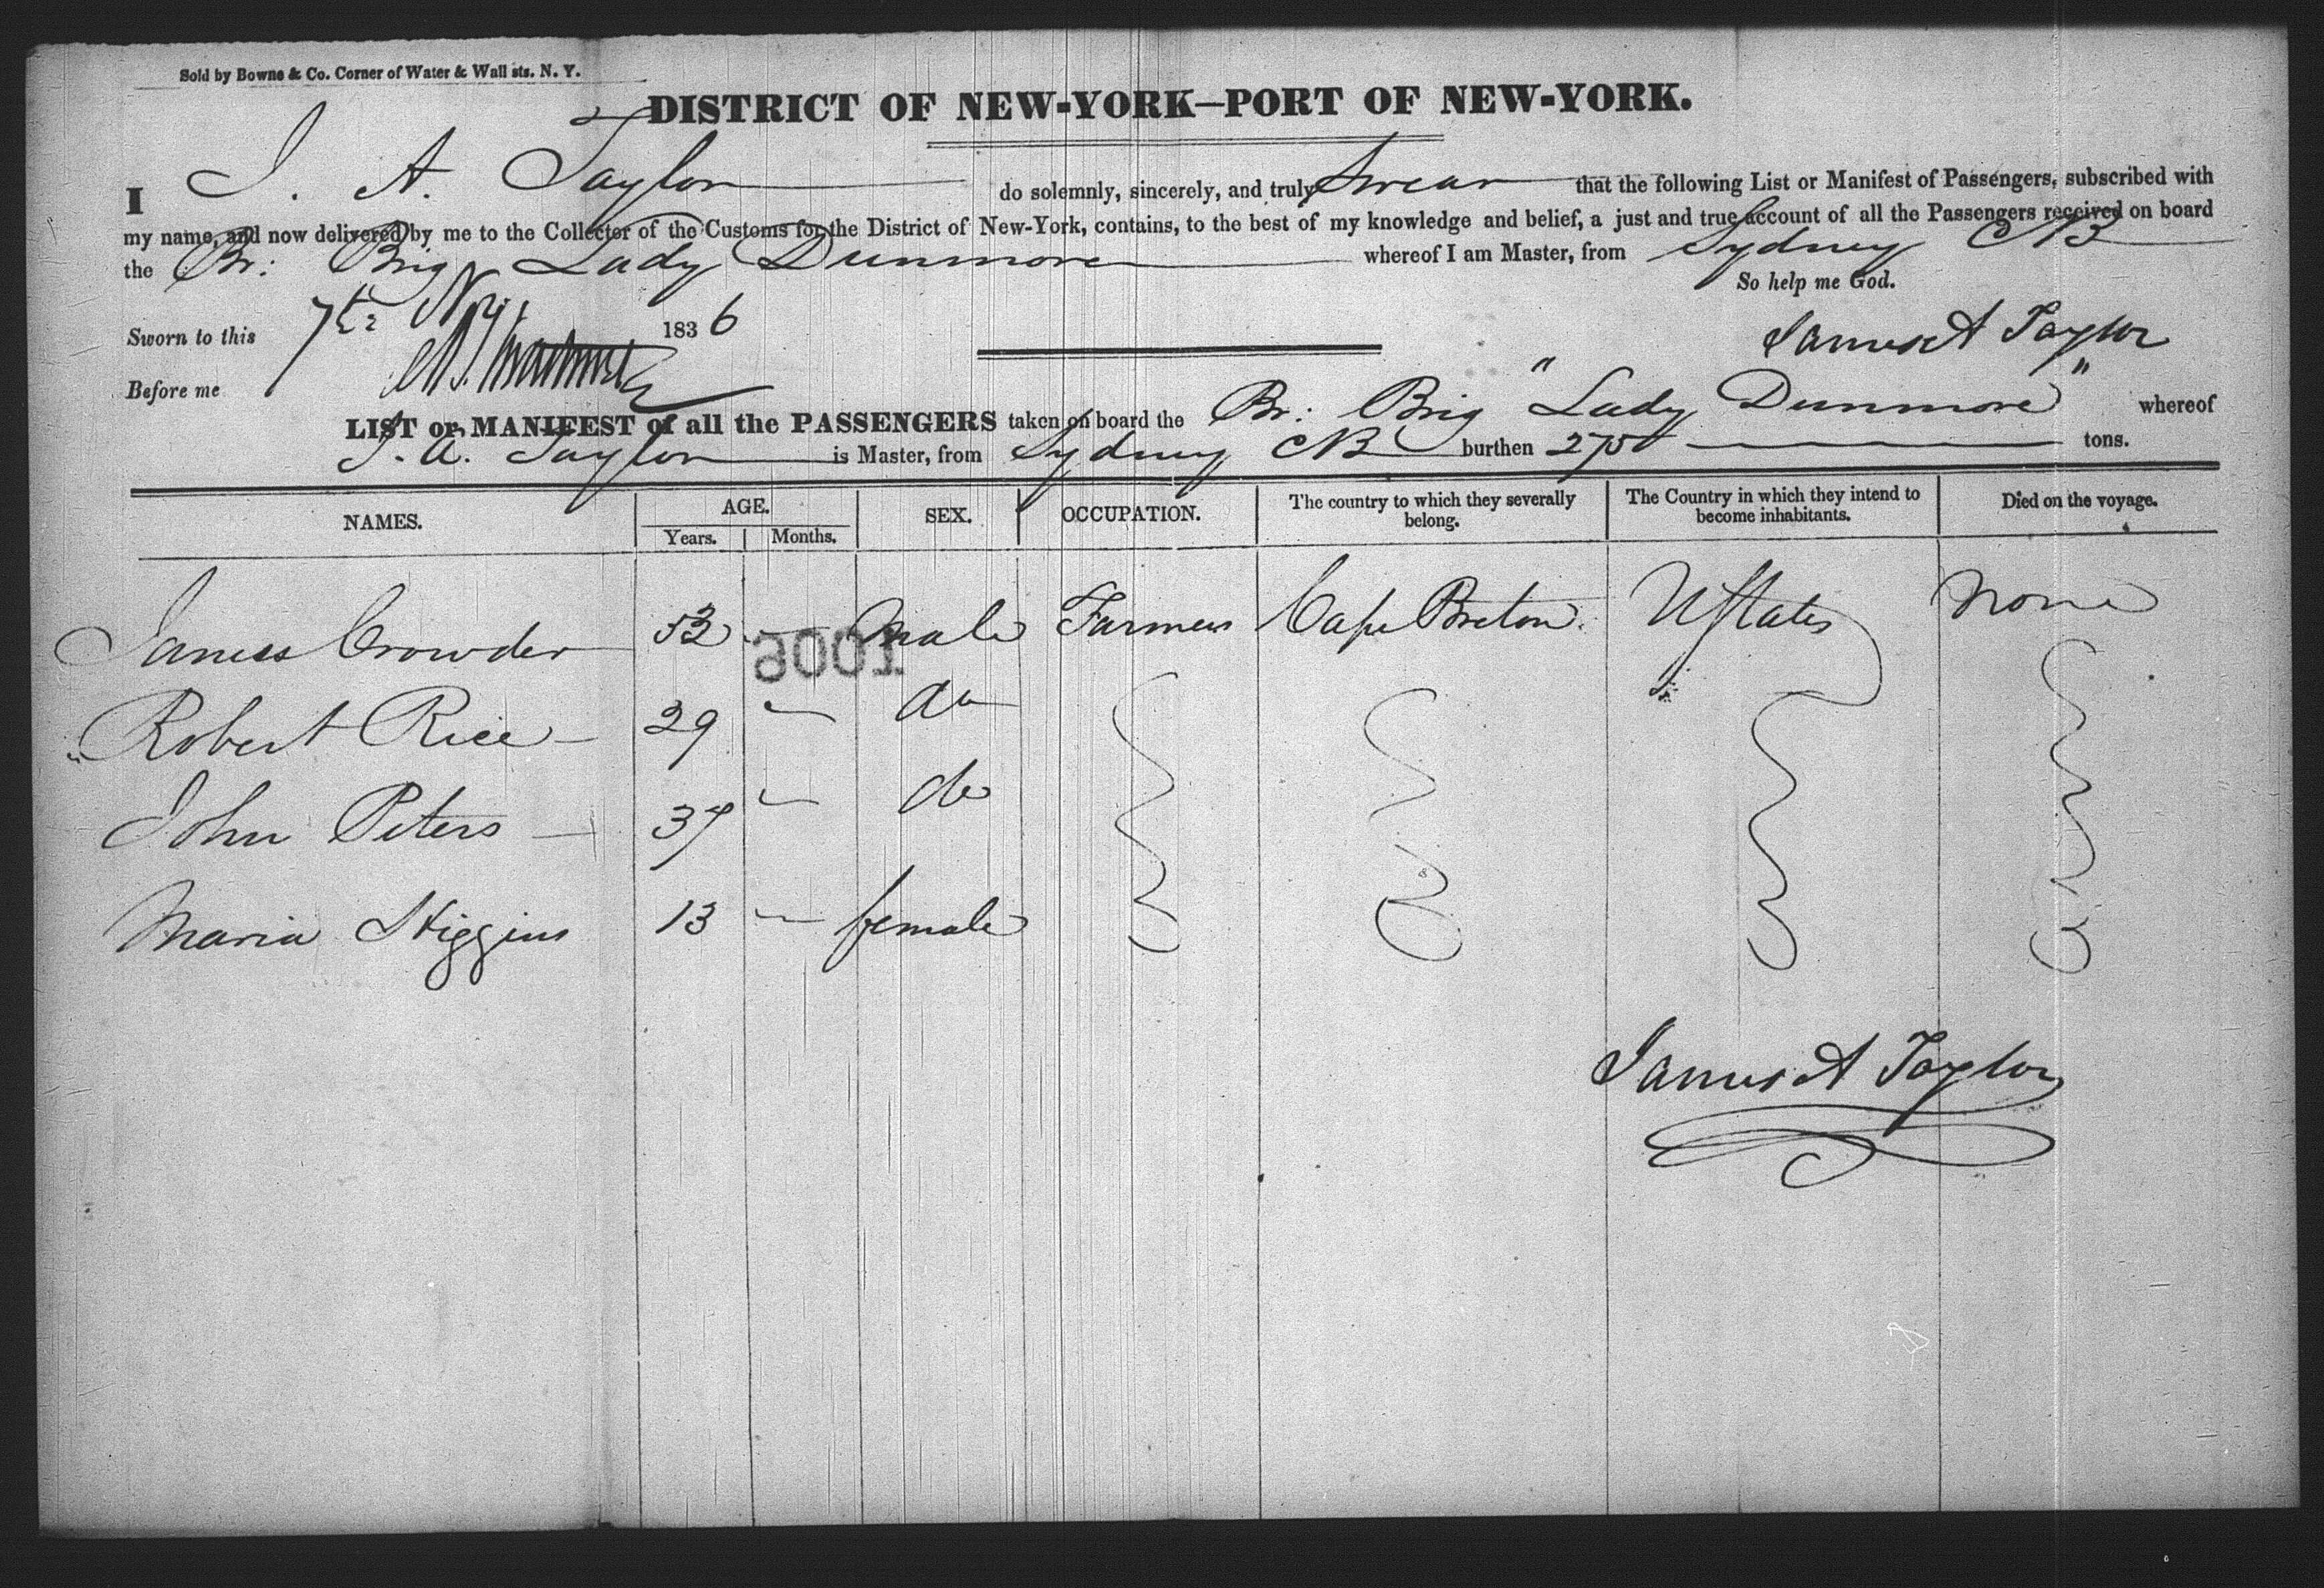 Sold by Bowne & Co. Corner of Water & Wall sts. N. Y.
DISTRICT OF NEW-YORK—PORT OF NEW-YORK.
I J. A. Taylor do solemnly, sincerely, and truly Swear that the following List or Manifest of Passengers, subscribed with
my name, and now delivered by me to the Collector of the Customs for the District of New-York, contains, to the best of my knowledge and belief, a just and true account of all the Passengers received on board
the Br: Brig Lady Dunmore whereof I am Master, from Sydney CB
So help me God.
Sworn to this 7th 1836
James A Taylor
Before me
LIST or MANIFEST of all the PASSENGERS taken on board the Br: Brig "Lady Dunmore" whereof
J. A. Taylor is Master, from Sydney CB burthen 275 tons.
NAMES. AGE. SEX. OCCUPATION. The country to which they severally belong. The Country in which they intend to become inhabitants. Died on the voyage.
Years. Months.
James Crowder 53 male Farmer Cape Breton. UStates None
1006
Robert Rice 29 do
John Peters 37 do
Maria Higgins 13 female
James A Taylor